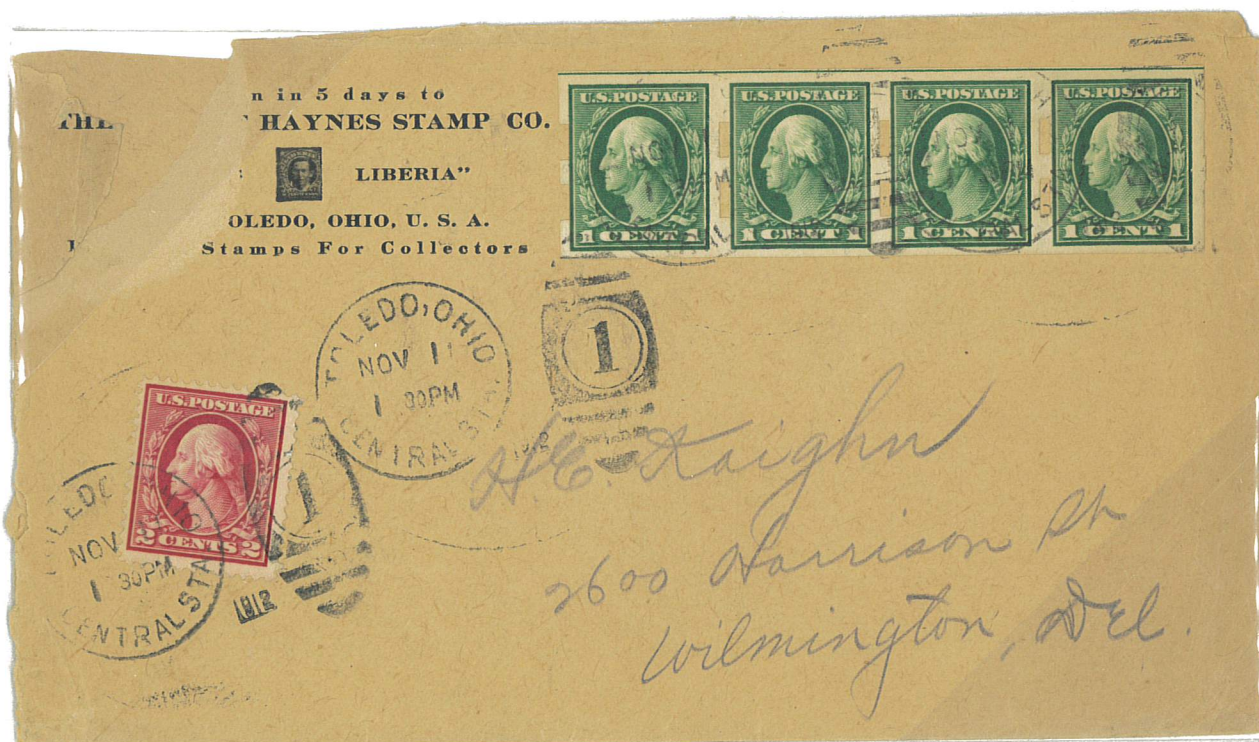 n in 5 days to
THE HAYNES STAMP CO.
LIBERIA"
OLEDO, OHIO, U. S. A.
Stamps For Collectors
U.S.POSTAGE U.S.POSTAGE U.S.POSTAGE U.S.POSTAGE
1 CENT 1 1 CENT 1 1 CENT 1 1 CENT 1
TOLEDO, OHIO
NOV 11
1 30PM
CENTRAL STA.
1912
1
U.S.POSTAGE
2 CENTS 2
TOLEDO OHIO
NOV
1 30PM
CENTRAL STA.
1912
1
H.E. Kaighn
2600 Harrison St
Wilmington, Del.